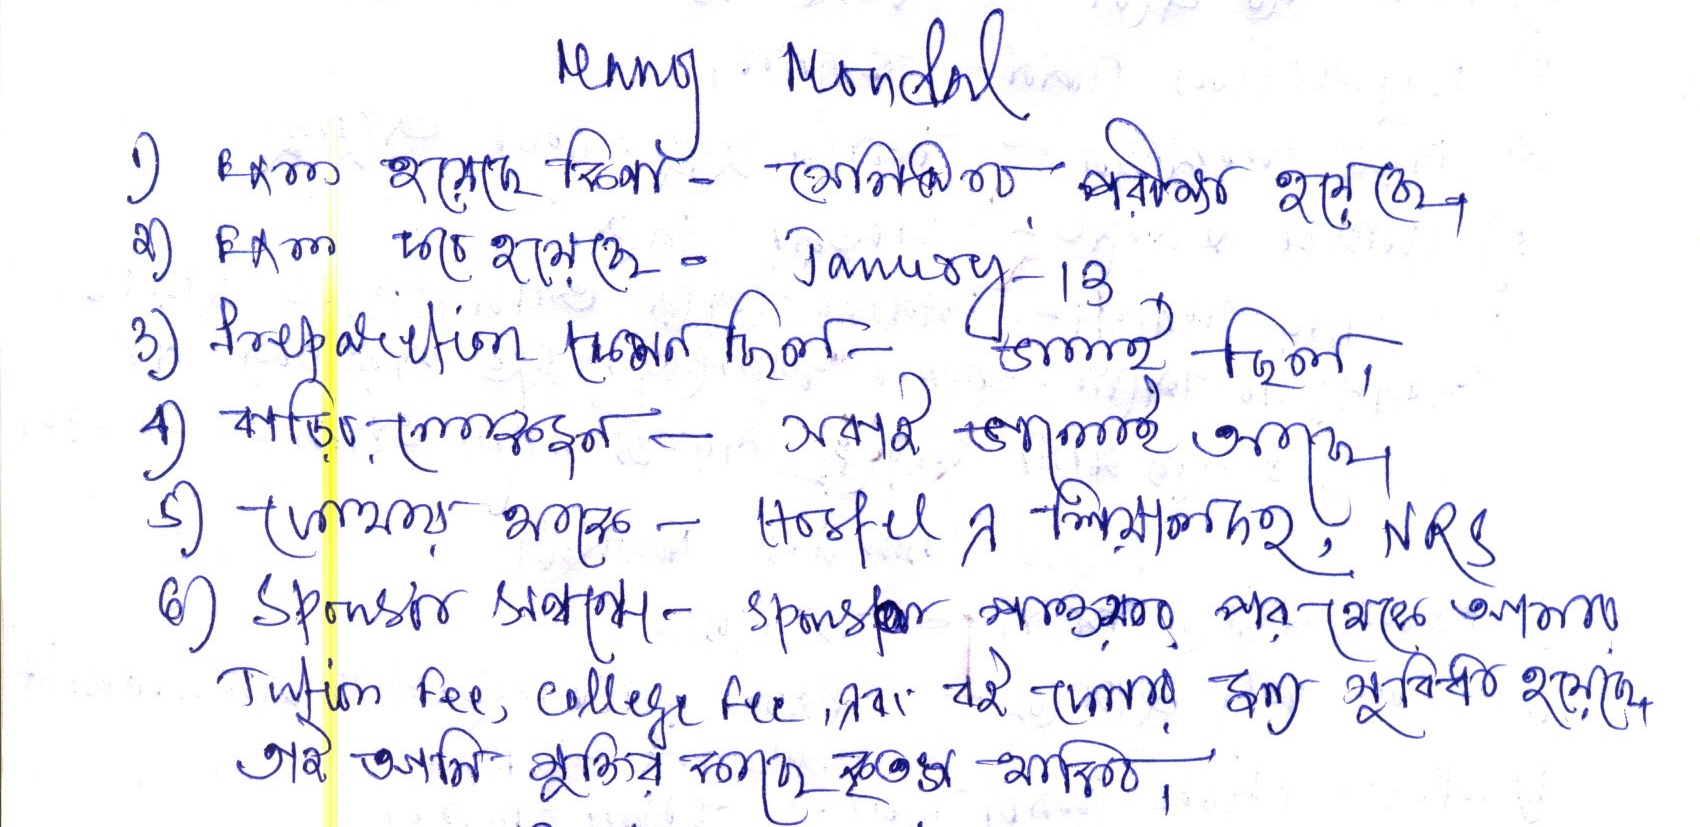 Manoj Mondal
1) Exam হয়েছে কিনা - সেমিস্টার পরীক্ষা হয়েছে।
২) Exam কবে হয়েছে - January - 13
3) Preparation কেমন ছিল - ভালই ছিল।
4) বাড়ির লোকজন - সবাই ভালোই আছে।
5) কোথায় থাকে - Hostel এ শিয়ালদহ, NRS
6) Sponsor সম্বন্ধে - sponsor পাওয়ার পর থেকে আমার
Tution Fee, College Fee, এবং বই কেনার জন্য সুবিধা হয়েছে,
তাই আমি মুক্তির কাছে কৃতজ্ঞ থাকিব।